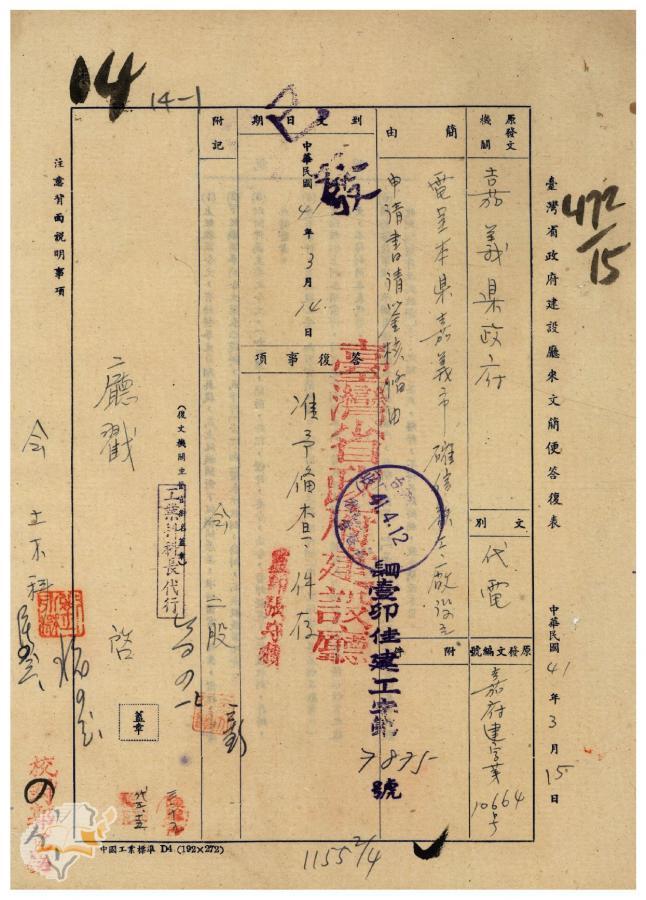 14
14-1
472/15
臺灣省政府建設廳來文簡便答復表
中華民國41年3月15日
原發文機關
嘉義県政府
文別
代電
原發文編號
嘉府建字第10664号
簡由
電呈本県嘉義市確信
設立
申請書請鑒核俻由
附件
到文日期
中華民國41年3月14日
已發
答復事項
准予俻查
件存
臺灣省政府建設廳
41.4.12
肆壹卯佳建工字第
7875
號
監印張守積
附記
會二股
(復文機關主管官銜名蓋章)
工業科科長代行
廳戳
啓
蓋章
會土木科
注意背面說明事項
校對
中國工業標準 D4 (192×272)
1155 2/4